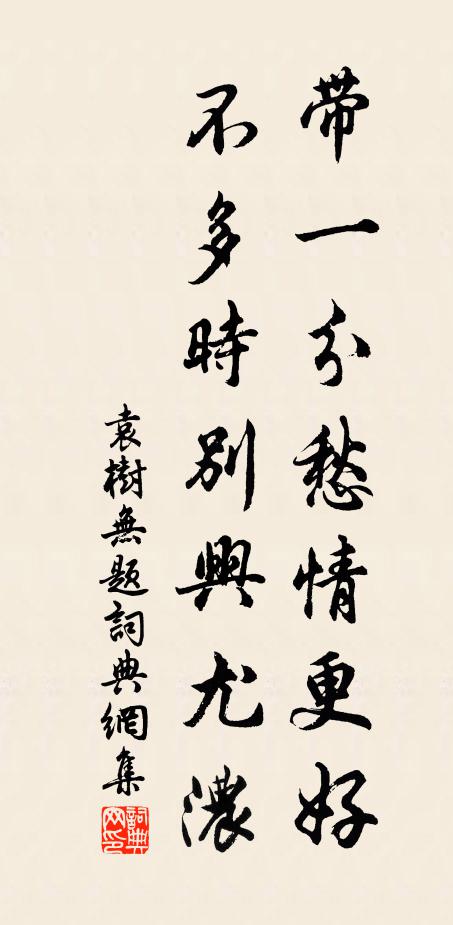 帶一分愁情更好
不多時别興尤濃
袁樹無題詞典網集
詞典網印